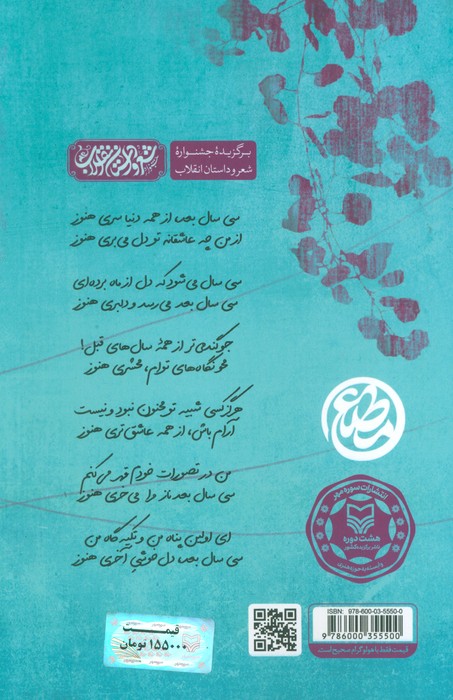 برگزیدهٔ جشنوارهٔ
شعر و داستان انقلاب
سی سال بعد از همه دنیا سری هنوز
از من چه عاشقانه تو دل می‌بری هنوز
سی سال می‌شود که دل از ماه برده‌ای
سی سال بعد می‌رسد و دلبری هنوز
جوگندمی‌تر از همهٔ سال‌های قبل!
محو نگاه‌های توام، محشری هنوز
هرگز کسی شبیه تو مجنون نبود و نیست
آرام باش، از همه عاشق‌تری هنوز
من در تصورات خودم قهر می‌کنم
سی سال بعد ناز مرا می‌خری هنوز
ای اولین پناه من و تکیه‌گاه من
سی سال بعد دل‌خوشی آخری هنوز
انتشارات سوره مهر
هشت دوره
ناشر برگزیده کشور
وابسته به حوزه هنری
ISBN: 978-600-03-5550-0
9 786000 355500
قیمت فقط با هولوگرام صحیح است
قیمت
۱۵۵۰۰۰ تومان